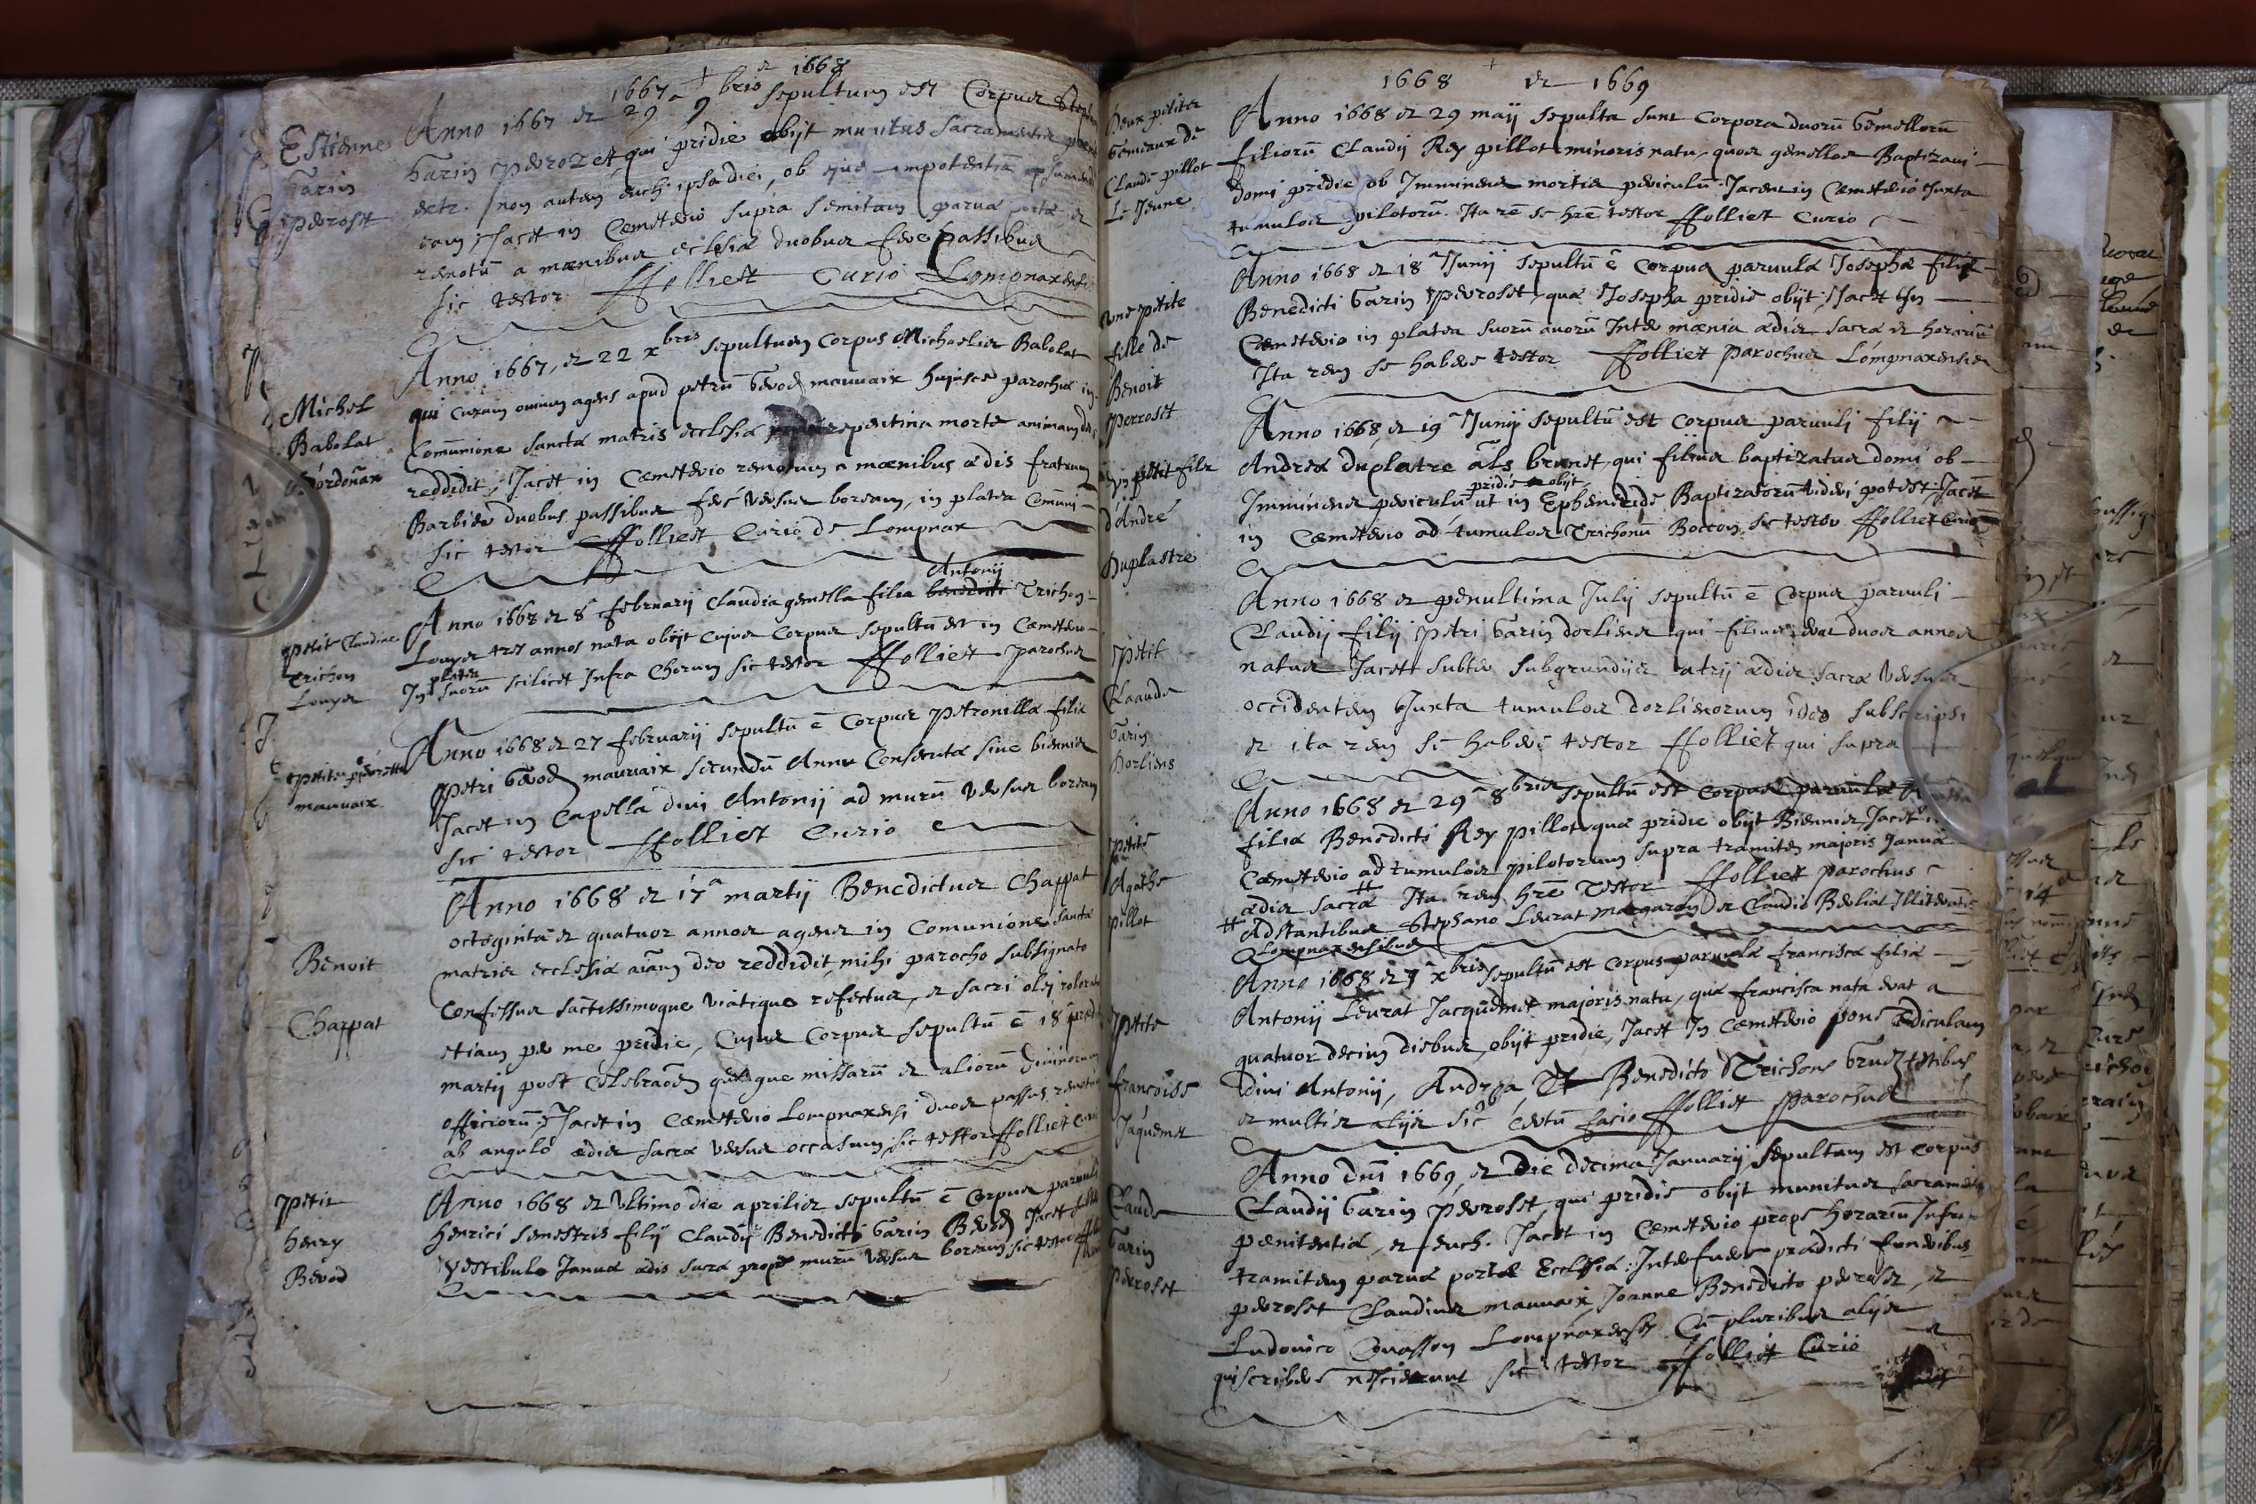 1667 et 1668
Estienne
Garin
Perroset
Anno 1667 et 29 9bris sepultum est Corpus
Garin Perrozet, qui pridie obijt munitus sacramentis
non autem euch: ipsa diei, ob ejus impotentiã
eam, Jacet in Cœmeterio supra semitam parvæ portæ et
remotũ a mœnibus ecclesiæ duobus fere passibus
sic testor ffolliet Curio Lompnaxensis
Michel
Babolat
Anno 1667, et 22 xbris sepultum Corpus Michaelis Babolat
qui curam ovium agens apud petrũ mauvaix hujusce parochiæ in
Com̃unione sanctæ matris ecclesiæ repentina morte animam deo
reddidit, Jacet in Cœmeterio remotum a mœnibus ædis fratrum
Barbier duobus passibus ferè versus boream, in platea Com̃uni
sic testor ffolliet Curio de Lompnax
petit Claudine
trichon
Louyse
Anno 1668 et 8ª februarij Claudia gemella filia benedicti Antonij Trichon
Louyse tres annos nata obijt cujus Corpus sepultũ est in Cœmeterio
In platea suorũ scilicet Infra Chorum sic testor ffolliet Parochus
petite perrette
mauvaix
Anno 1668 et 27 februarij sepultũ ẽ Corpus Petronillæ filiæ
Petri mauvaix secundũ Annũ sive biennis
Jacet in Capella divi Antonij ad murũ versus boream
sic testor ffolliet Curio
Benoit
Chappat
Anno 1668 et 17ª martij Benedictus Chappat
octoginta et quatuor annos agens in Comunione sanctæ
matris ecclesiæ aĩam deo reddidit, mihi parocho subsignato
Confessus sãctissimoque viatique refectus, et sacri olei
etiam per me pridie, Cujus Corpus sepultũ ẽ 18
martij post missarũ et aliorũ divinorum
officiorũ; Jacet in Cœmeterio Lompnaxensi duos passus
ab angulo ædis sacræ versus occasum, sic testor ffolliet Curio
Petit
henry
Bevod
Anno 1668 et ultimo die aprilis sepultũ ẽ Corpus parvuli
henrici semestris filij Claudij Benedicti Garin Bevod Jacet
vestibulo Januæ ædis sacræ prope murũ versus boream sic testor
1668 et 1669
Deux petites
Gemeaux de
Claude pillot
Le Jeune
Anno 1668 et 29 maij sepulta sunt Corpora duorũ Gemellorũ
filiorũ Claudij Rey pillot minoris natu, quos gemellos Baptizavi
domi pridie ob Imminens mortis periculũ. Jacent in Cœmeterio Juxta
tumulos pilotorũ. Ita rẽ se hrẽ testor ffolliet Curio
Une petite
fille de
Benoit
Perroset
Anno 1668 et 18ª Junij sepultũ ẽ Corpus parvulæ Josephæ filiæ
Benedicti Garin Perroset, quæ Josepha pridie obijt, Jacet In
Cœmeterio in platea suorũ avorũ Inter mœnia ædis sacræ et horariũ
Ita rem se habere testor ffolliet Parochus Lompnaxensis
Un petit filz
d'André
Duplastre
Anno 1668 et 19ª Junij sepultũ est Corpus parvuli filij
Andreæ duplatre al̃s brunet, qui filius baptizatus domi ob
Imminens periculũ pridie obijt ut in Ephemeride Baptizatorũ videri potest. Jacet
in Cœmeterio ad tumulos Trichonũ Boccon, sic testor ffolliet Curio
Petit
Claaude
Garin
Dorliens
Anno 1668 et penultima Julij sepultũ ẽ Corpus parvuli
Claudij filij Petri Garin dorliens qui filius erat duos annos
natus Jacet subter subgrundijs atrij ædis sacræ versus
occidentem Juxta tumulos dorlienorum ideo subscripsi
et ita rem se habere testor ffolliet qui supra
Petite
Agathe
pillot
Anno 1668 et 29ª 8bris sepultũ est Corpus parvulæ
filiæ Benedicti Rey pillot, quæ pridie obijt Biennis, Jacet in
Cœmeterio ad tumulos pilotorum supra tramitem majoris Januæ
ædis sacræ # Ita rem hrẽ testor ffolliet parochus
# Adstantibus Stephano Leurat margaron et Claudio Berliat Illiteratis
Lompnaxensibus
Petite
françoise
Jaquemet
Anno 1668 et 7ª xbris sepultũ est Corpus parvulæ franciscæ filiæ
Antonij Leurat Jacquemet majoris natu, quæ francisca nata erat a
quatuor decim diebus, obijt pridie, Jacet In Cœmeterio pone ædiculam
divi Antonij, Andrea, Et Benedicto Trichons testibus
et multis alijs sic certũ facio ffolliet Parochus
Claude
Garin
Perroset
Anno Dñi 1669, et Die decima Januarij sepultum est Corpus
Claudij Garin Perroset, qui pridie obijt munitus sacramentis
pœnitentiæ, et euch. Jacet in Cœmeterio prope horariũ Infra
tramitem parvæ portæ Ecclesiæ: Interfuere prædicti funeribus
perroset Claudius mauvaix, Joanne Benedicto peroset, et
Ludovico Lompnaxenses Cũ pluribus alijs
qui scribere nescierunt sic testor ffolliet Curio